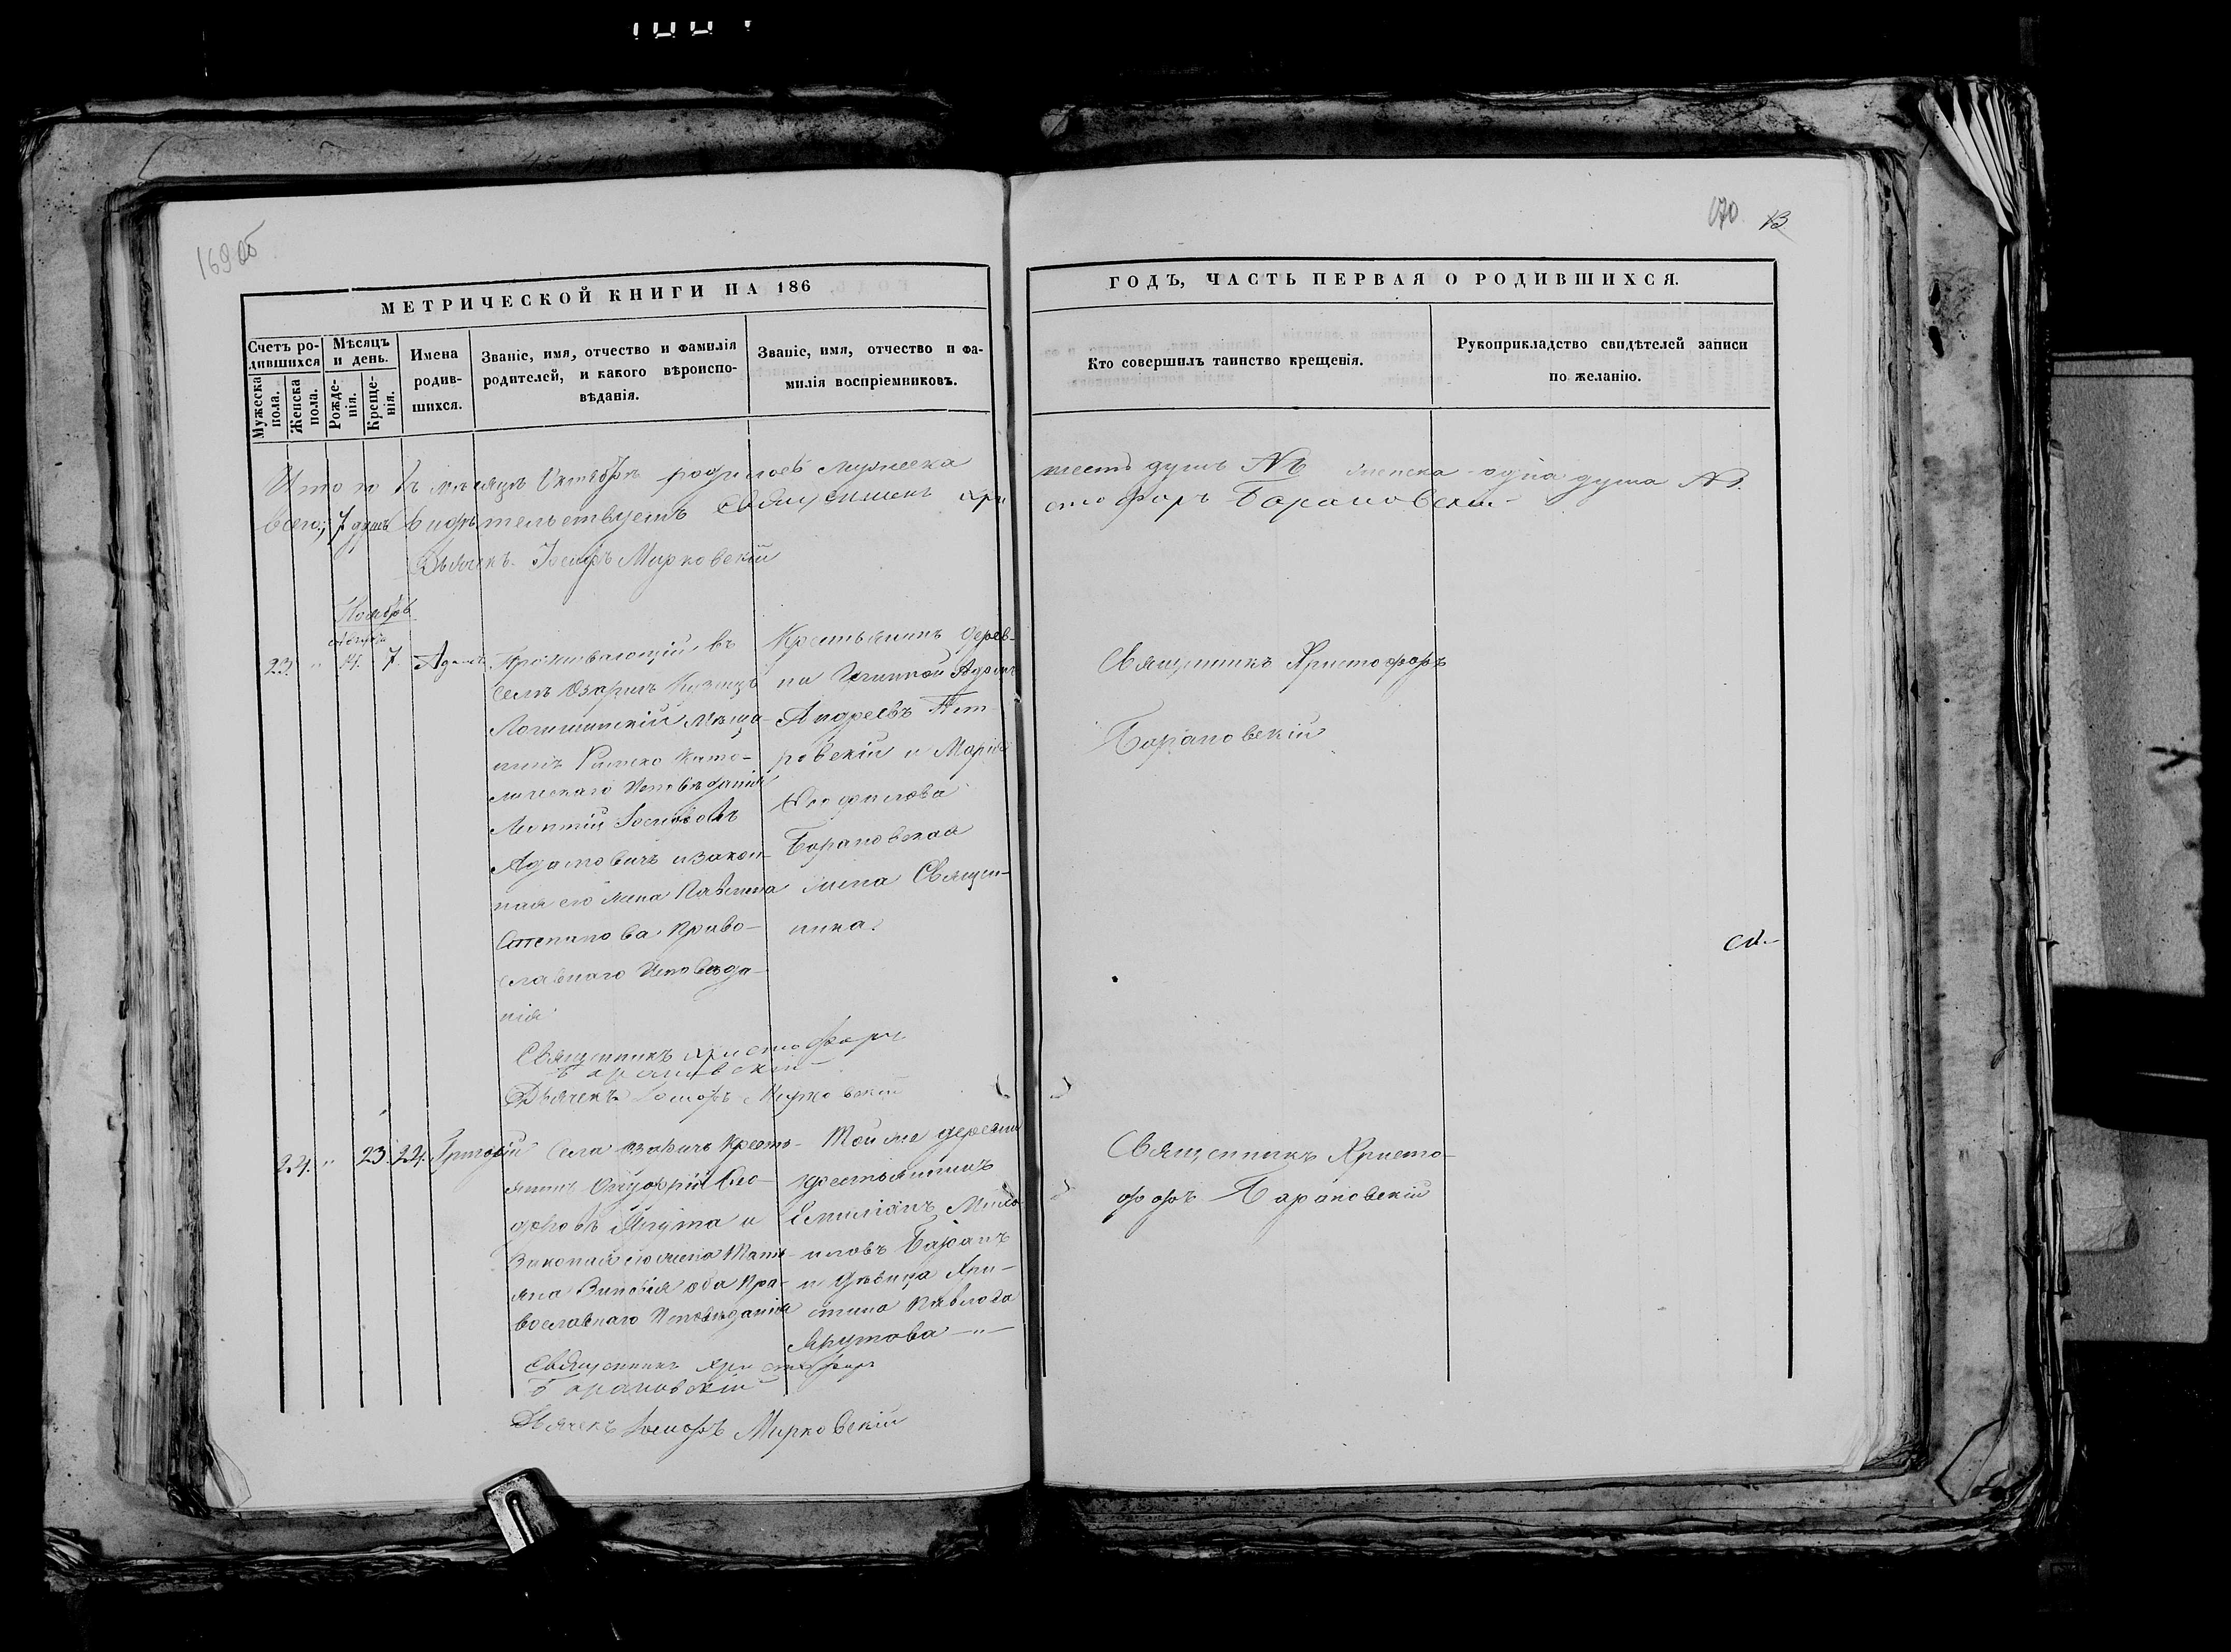 169об
МЕТРИЧЕСКОЙ КНИГИ НА 186
Счетъ ро-
дившихся
Мужеска
пола.
Женска
пола.
Мѣсяцъ
и день.
Рожде-
нія.
Креще-
нія.
Имена
родив-
шихся.
Званіе, имя, отчество и фамилія
родителей, и какого вѣроиспо-
вѣданія.
Званіе, имя, отчество и фа-
милія воспріемниковъ.
Итого въ мѣсяцѣ Октябрѣ родилось мужеска
всего 7 душъ видѣтельствуетъ Священникъ Хри
Дьячекъ Іосифъ Мирковскій
Ноябрь
Августа
23. " 14. 7. Адамъ
Проживающій въ
селѣ Озаричъ
Логишинскій мѣща-
нинъ Римско Като-
лическаго Исповѣданія
Іосифовъ
Адамовичъ и закон-
ная его жена
Степанова Право-
славнаго Исповѣда-
нія
Крестьянинъ дерев-
ни
Андреевъ Пет-
ровскій и Марія
Барановская
жена Священ-
ника.
Священникъ Христофоръ
Барановскій
Дьячекъ Іосифъ Мирковскій
24. " 23. 24. Григорій
Села Озаричъ Кресть-
янинъ Онуфрій
и
Законная его жена Тать-
яна Зиновія оба Пра-
вославнаго Исповѣданія
Той же деревни
крестьянинъ
Емиліанъ Миха-
иловъ Баранъ
и дѣвица Хри-
стина Павлова
Священникъ Христофоръ
Барановскій
Дьячекъ Іосифъ Мирковскій
170 13
ГОДЪ, ЧАСТЬ ПЕРВАЯ О РОДИВШИХСЯ.
Кто совершилъ таинство крещенія.
Рукоприкладство свидѣтелей записи
по желанію.
шесть душъ №6 женска одна душа №1.
стофоръ Барановскій
Священникъ Христофоръ
Барановскій
Священникъ Христо-
форъ Барановскій